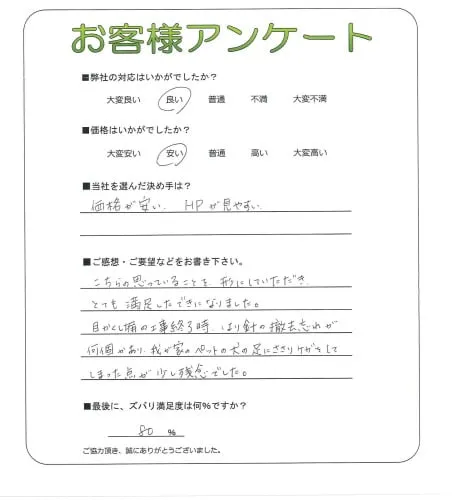 お客様アンケート
■弊社の対応はいかがでしたか？
大変良い 良い 普通 不満 大変不満
■価格はいかがでしたか？
大変安い 安い 普通 高い 大変高い
■当社を選んだ決め手は？
価格が安い、HPが見やすい
■ご感想・ご要望などをお書き下さい。
こちらの思っていることを、形にしていただき、
とても満足したできになりました。
目かくし塀の工事終了時、はり針の撤去忘れが
何個かあり、我が家のペットの犬の足にささりケガをして
しまった点が少し残念でした。
■最後に、ズバリ満足度は何％ですか？
80 ％
ご協力頂き、誠にありがとうございました。